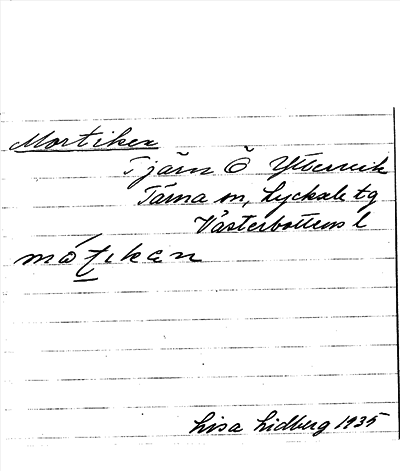 Mortiken
Tjärn Ö Yttervik
Tärna sn, Lycksele tg
Västerbottens l
mo̕t̠ıkan
Lisa Lidberg 1935